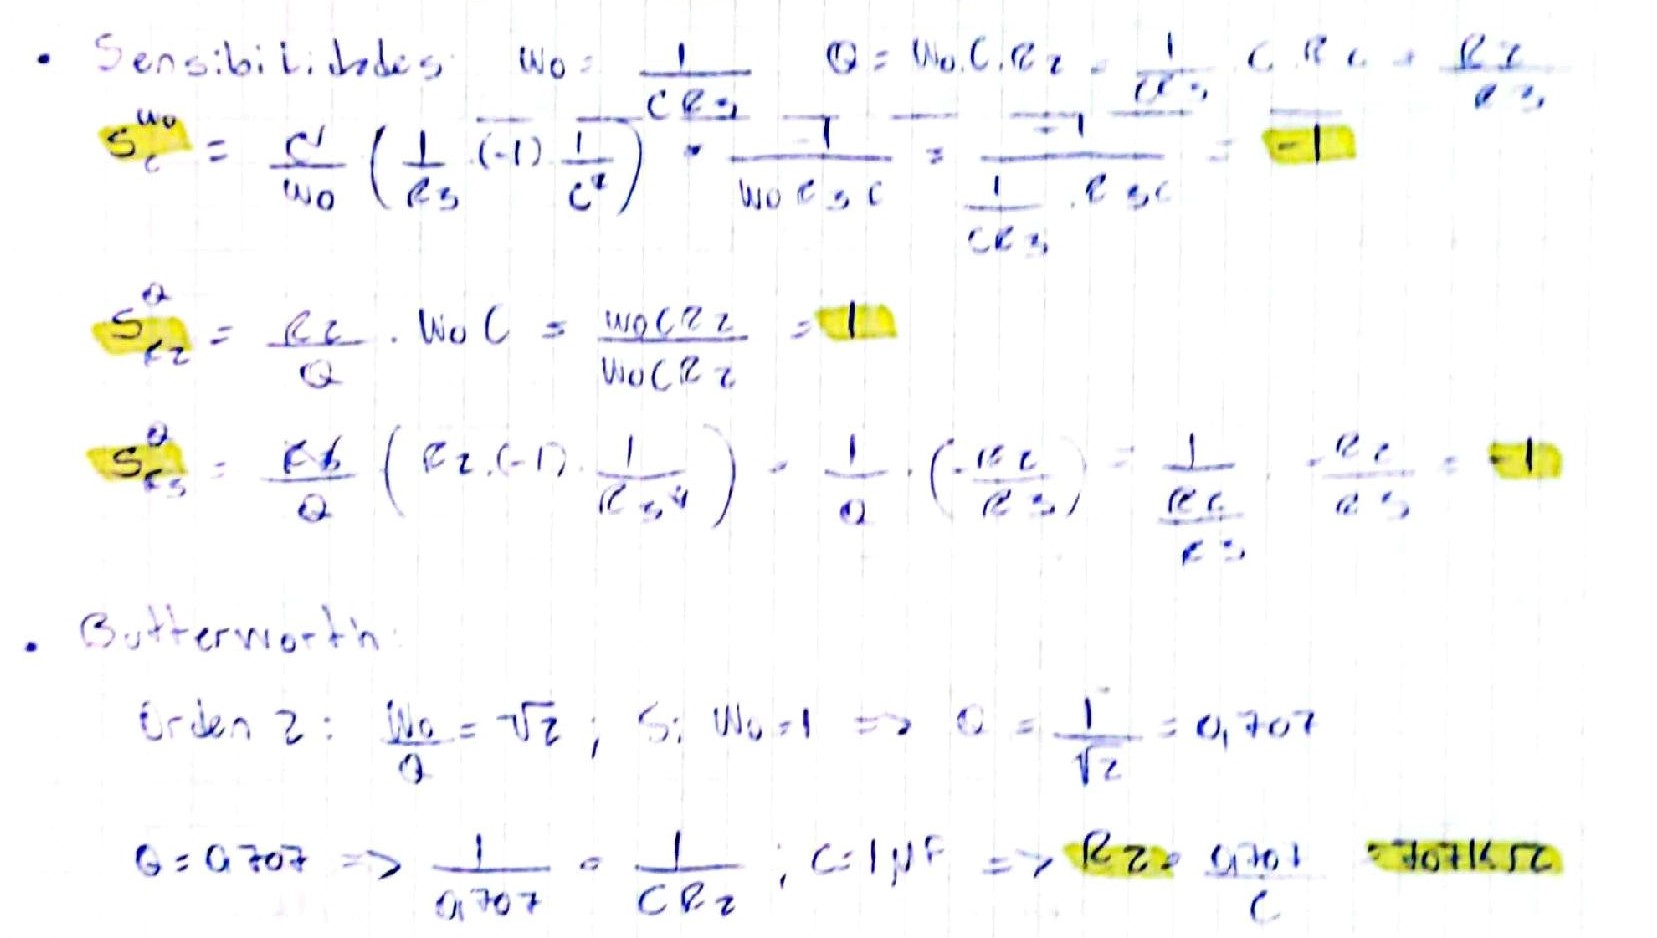 • Sensibilidades: W₀ = 1/(CR₃)   Q = W₀.C.R₂ = 1/(CR₃) . C . R₂ = R₂/R₃
S_C^W₀ = C/W₀ ( 1/R₃ . (-1) . 1/C² ) = -1/(W₀R₃C) = -1/(1/(CR₃) . R₃C) = -1
S_R₂^Q = R₂/Q . W₀C = W₀CR₂/W₀CR₂ = 1
S_R₃^Q = R₃/Q ( R₂.(-1). 1/R₃² ) = 1/Q . ( -R₂/R₃ ) = 1/(R₂/R₃) . -R₂/R₃ = -1
• Butterworth:
Orden 2: W₀/Q = √2 ; Si W₀=1 => Q = 1/√2 = 0,707
Q = 0,707 => 1/0,707 = 1/(CR₂) ; C=1μF => R₂ = 0,707/C = 707KΩ